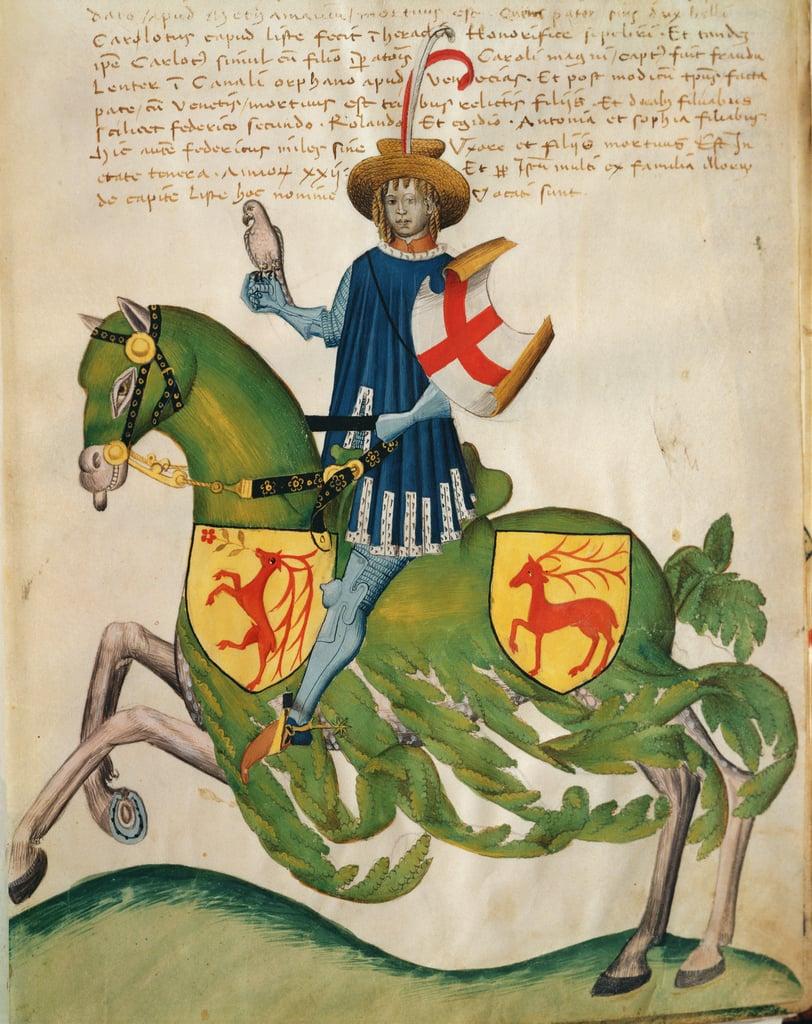 apud mortuus est. pater dux belli
Carolotus capud liste fecit honorifice sepiliri. Et tandez
ipe Carlotz simul cū filio Caroli magni / capt9 fuit fraudu
Lenter ī Canali orphano apud Venecias. Et post modicū tpus facta
pace / cū Venetis / mortuus est tribus relictis filijs. Et duabz filiabus
scilicet federico secundo. Rolando Et egidio. Antonia et sophia filiabus.
hic autē federicus miles sine Vxore et filijs mortuus Est In
etate tenera. Annorz xxij. Et multi ex familia
de capite liste hoc nomine Vocati sunt.